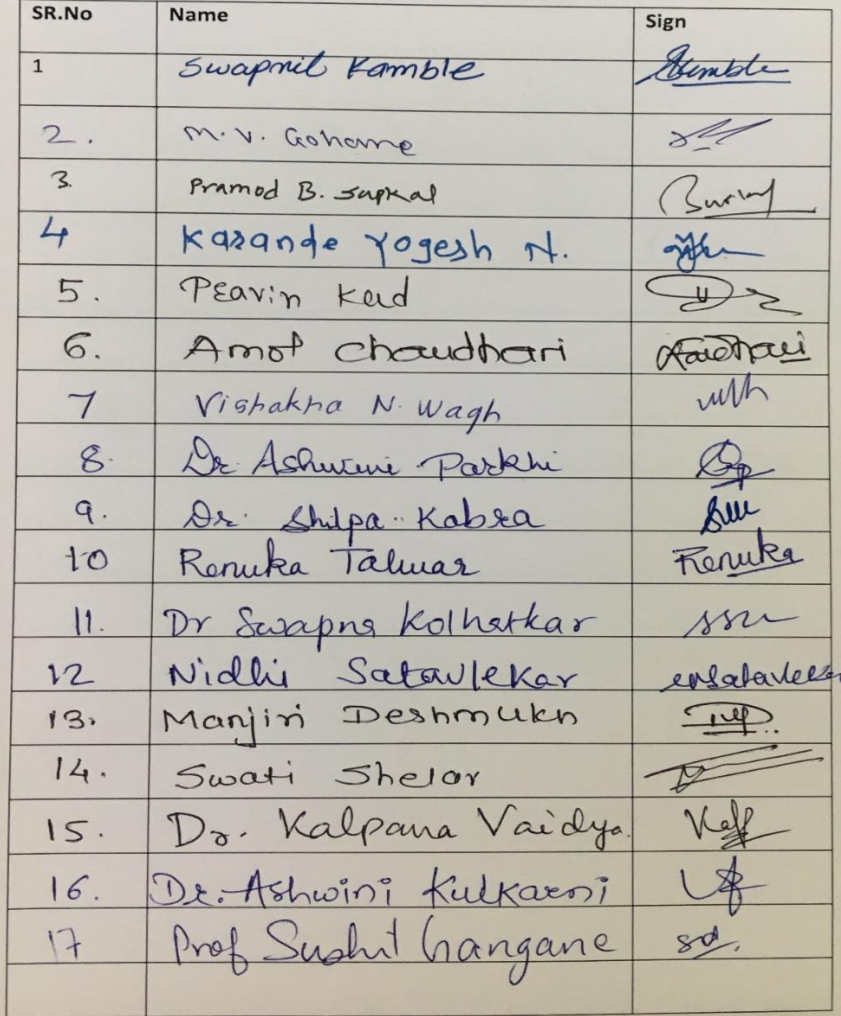 SR.No Name Sign
1 Swapnil Kamble Kamble
2. M.V. Gohane
3. Pramod B. Sapkal
4 Karande Yogesh N.
5. Pravin Kad
6. Amol Choudhari Choudhari
7 Vishakha N. Wagh
8. Dr. Ashwini Parkhi
9. Dr. Shilpa Kabra
10 Renuka Talwar Renuka
11. Dr Swapna Kolhatkar
12 Nidhi Satavlekar
13. Manjiri Deshmukh
14. Swati Shelar
15. Dr. Kalpana Vaidya.
16. Dr. Ashwini Kulkarni
17 Prof Sushil Gangane sd.